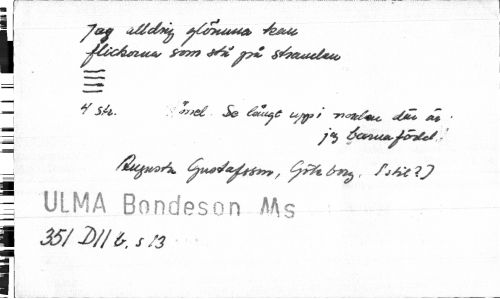 Jag alldrig glömma kan
flickorna som stå på stranden
4 str. mel. Se långt upp i norden där är
jag barnafödd!
Augusta Gustafsson, Göteborg. [stil?]
ULMA Bondeson Ms
351 D11 b, s 13